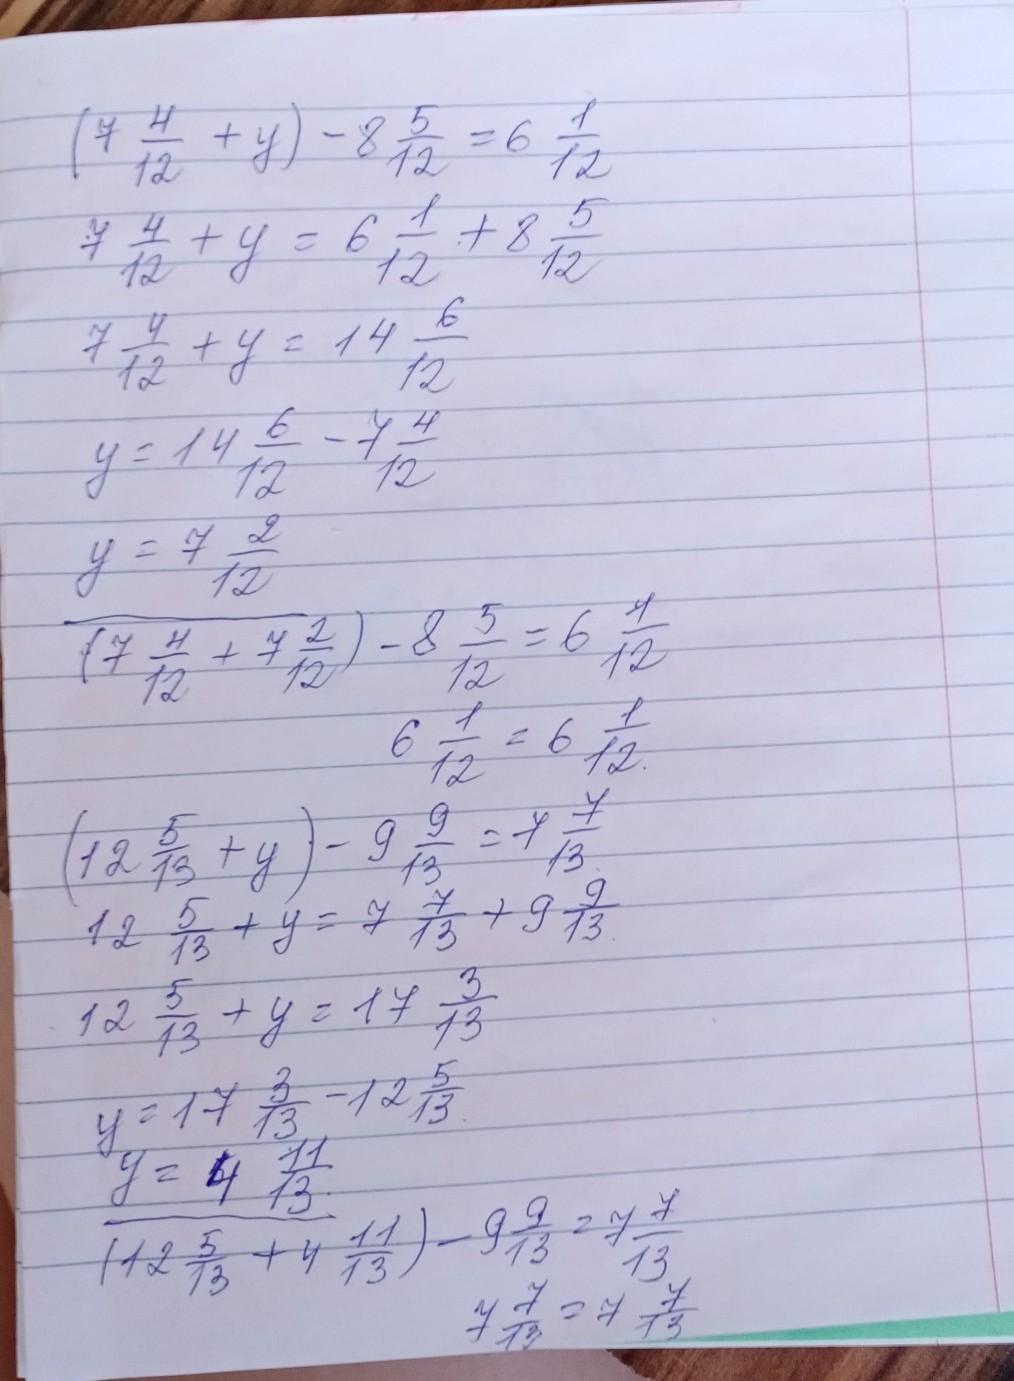 (7 4/12 + y) - 8 5/12 = 6 1/12
7 4/12 + y = 6 1/12 + 8 5/12
7 4/12 + y = 14 6/12
y = 14 6/12 - 7 4/12
y = 7 2/12
(7 4/12 + 7 2/12) - 8 5/12 = 6 1/12
6 1/12 = 6 1/12.
(12 5/13 + y) - 9 9/13 = 7 7/13.
12 5/13 + y = 7 7/13 + 9 9/13.
12 5/13 + y = 17 3/13
y = 17 3/13 - 12 5/13.
y = 4 11/13.
(12 5/13 + 4 11/13) - 9 9/13 = 7 7/13
7 7/13 = 7 7/13